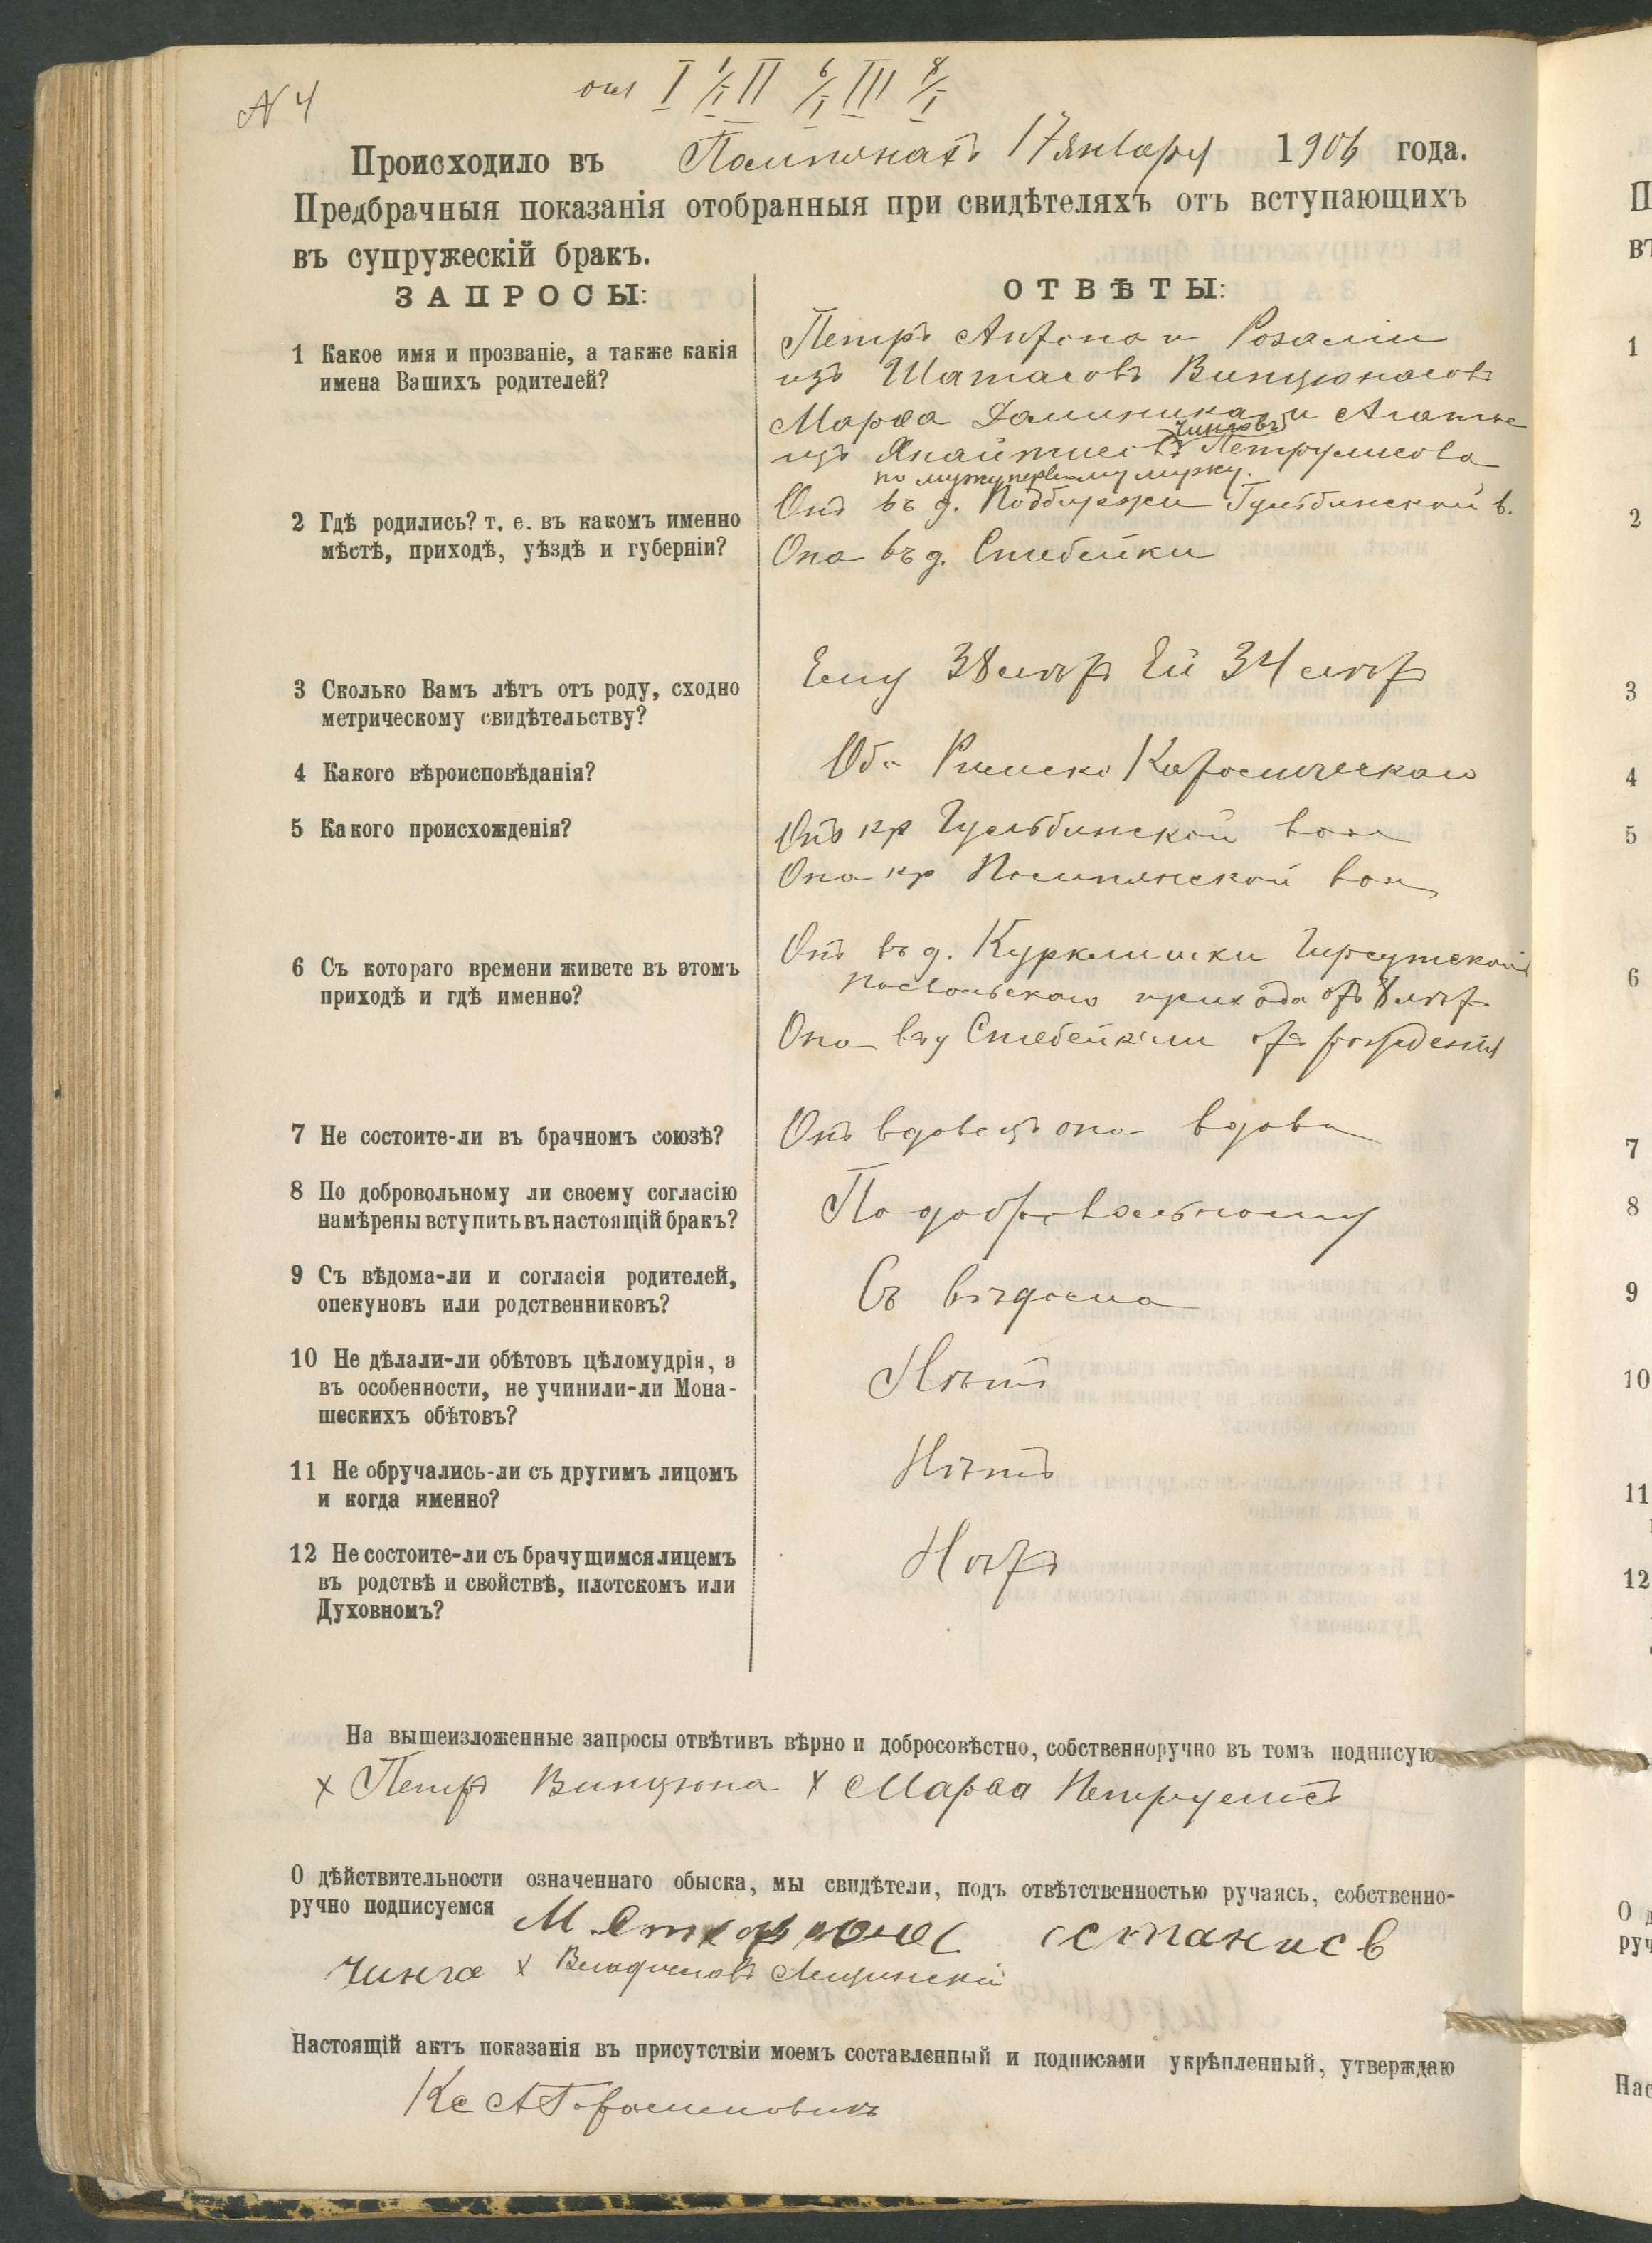 N 4
огл I 1/I II 6/I III 8/I
Происходило въ Помпянахъ 17 января 1906 года.
Предбрачныя показанія отобранныя при свидѣтеляхъ отъ вступающихъ
въ супружескій бракъ.
ЗАПРОСЫ:
ОТВѢТЫ:
1 Какое имя и прозваніе, а также какія
имена Вашихъ родителей?
Петръ Антона и Розаліи
изъ Шаталовъ Винцюнасовъ
Марѳа Доминика и Агаты
чинговъ
изъ Петрулисова
по мужу первому мужу.
2 Гдѣ родились? т. е. въ какомъ именно
мѣстѣ, приходѣ, уѣздѣ и губерніи?
Онъ въ д. Подбирежи Гульбинской в.
Она въ д. Стебейки
3 Сколько Вамъ лѣтъ отъ роду, сходно
метрическому свидѣтельству?
Ему 38 лѣтъ Ей 34 лѣтъ
4 Какого вѣроисповѣданія?
Оба Римско Католическаго
5 Какого происхожденія?
Онъ кр Гульбинской вол
Она кр Помпянской вол
6 Съ котораго времени живете въ этомъ
приходѣ и гдѣ именно?
Онъ въ д. Курклишки
Посвольскаго прихода отъ 8 лѣтъ
Она въ д Стебейкили отъ рожденія
7 Не состоите-ли въ брачномъ союзѣ?
Онъ вдовецъ она вдова
8 По добровольному ли своему согласію
намѣрены вступить въ настоящій бракъ?
По добровольному
9 Съ вѣдома-ли и согласія родителей,
опекуновъ или родственниковъ?
Съ вѣдома
10 Не дѣлали-ли обѣтовъ цѣломудрія, а
въ особенности, не учинили-ли Мона-
шескихъ обѣтовъ?
Нѣтъ
11 Не обручались-ли съ другимъ лицомъ
и когда именно?
Нѣтъ
12 Не состоите-ли съ брачущимся лицемъ
въ родствѣ и свойствѣ, плотскомъ или
Духовномъ?
Нѣтъ
На вышеизложенные запросы отвѣтивъ вѣрно и добросовѣстно, собственноручно въ томъ подписую
х Петръ Винцюна х Марѳа Петрулисъ
О дѣйствительности означеннаго обыска, мы свидѣтели, подъ отвѣтственностью ручаясь, собственно-
ручно подписуемся станисв
чинга х Владиславъ Лещинскій
Настоящій актъ показанія въ присутствіи моемъ составленный и подписями укрѣпленный, утверждаю
Кс А